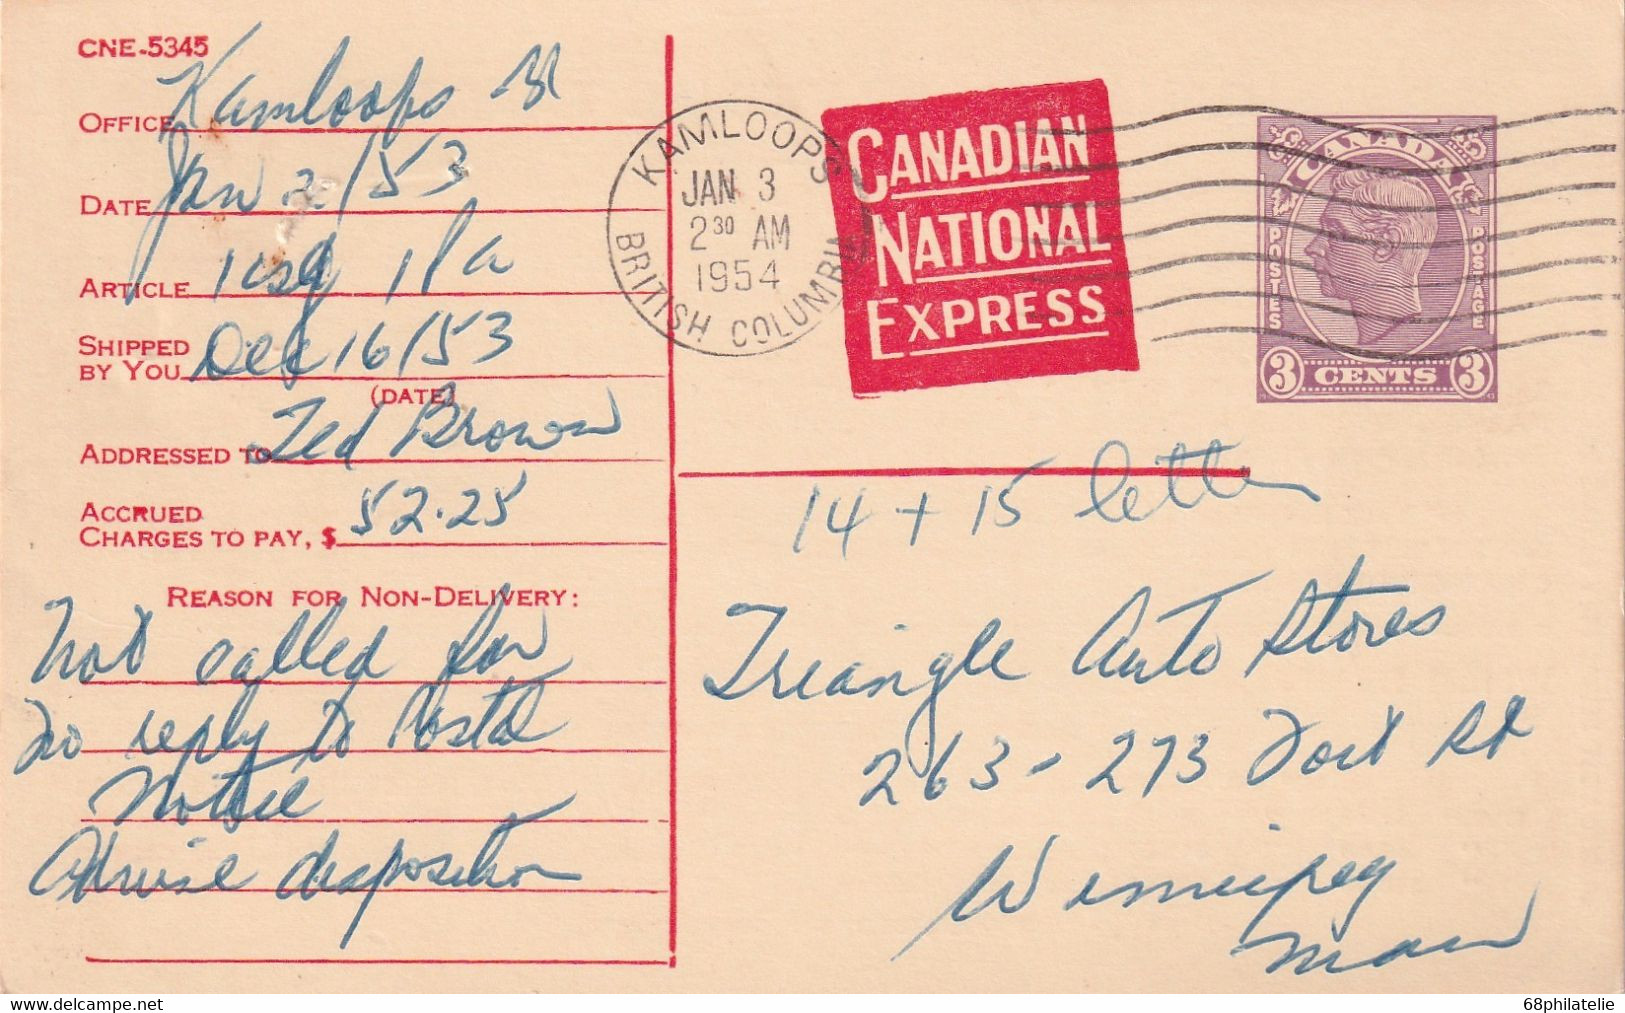 CNE-5345
OFFICE Kamloops
DATE Jan 2/53
ARTICLE 1 1
SHIPPED
BY YOU Dec 16/53
(DATE)
ADDRESSED TO Ted Brown
ACCRUED
CHARGES TO PAY, $ 52.25
REASON FOR NON-DELIVERY:
Not called for
No reply to Postal
Notice
Advise disposition
KAMLOOPS
JAN 3
2 30 AM
1954
BRITISH COLUMBIA
CANADIAN
NATIONAL
EXPRESS
CANADA
POSTES
POSTAGE
3 CENTS 3
14 + 15 letter
Triangle Auto Stores
263-273 Fort St
Winnipeg
Man
delcampe.net
68philatelie